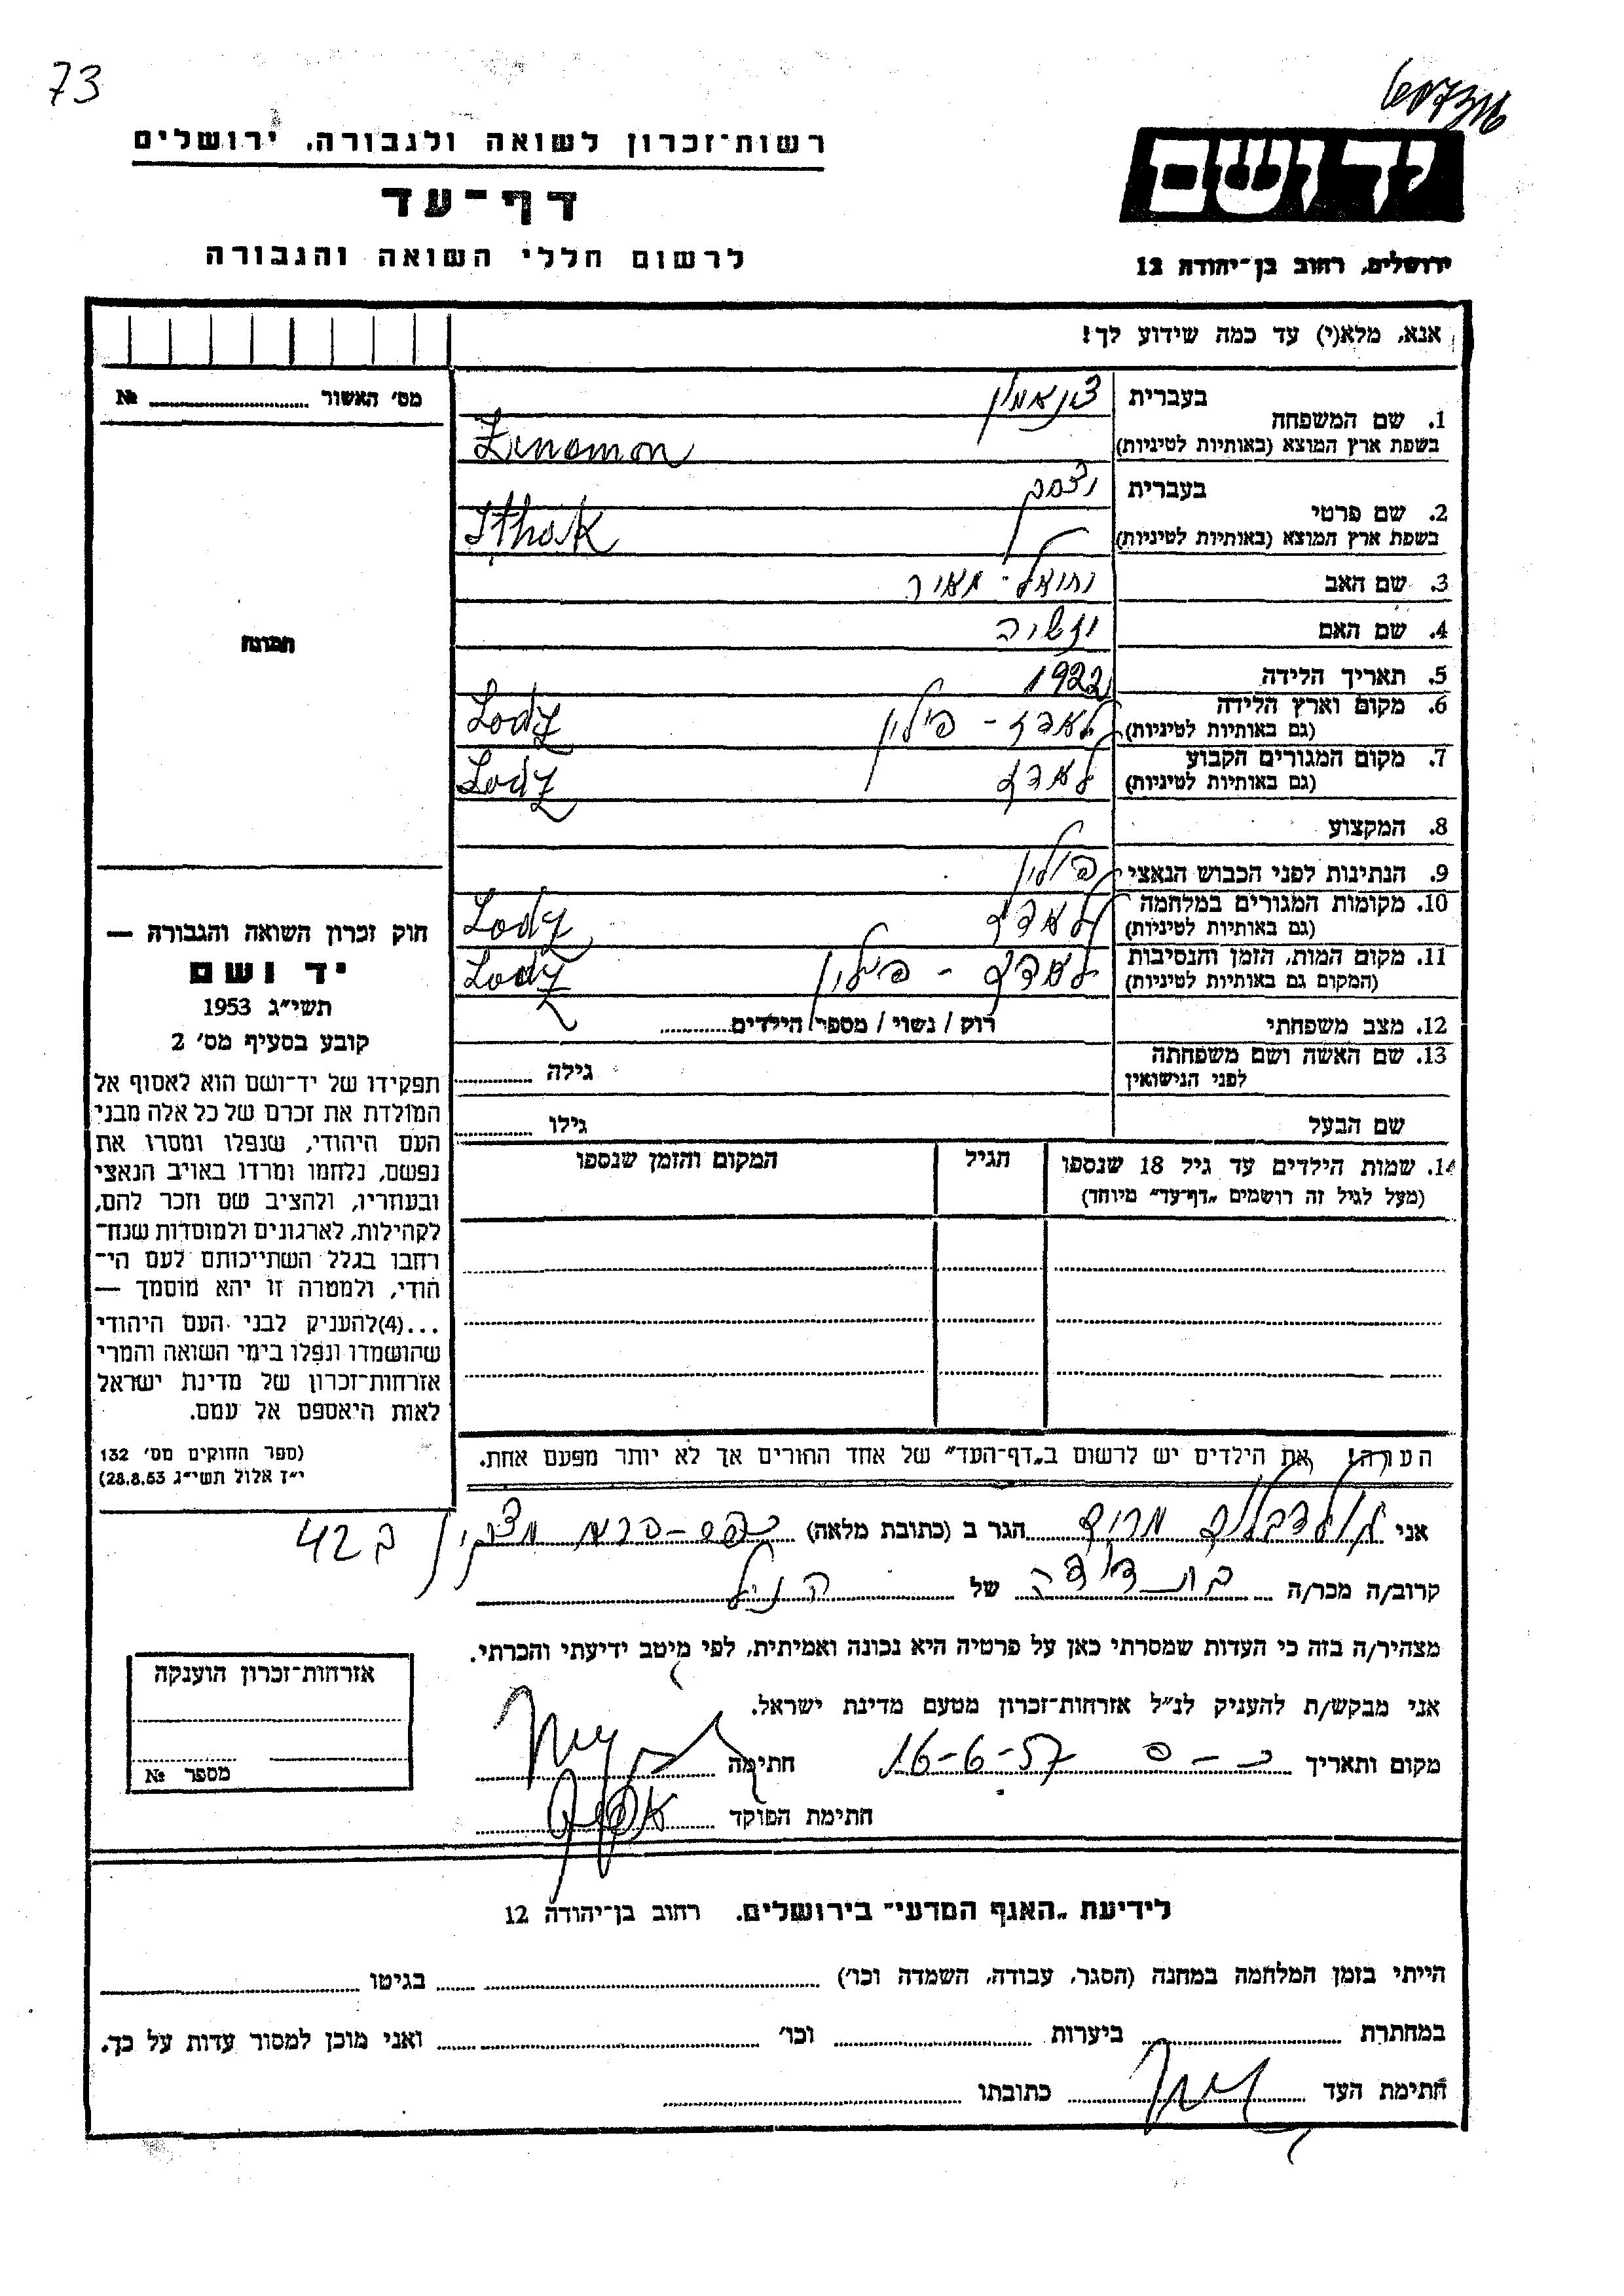 73
רשות־זכרון לשואה ולגבורה, ירושלים
דף־עד
לרשום חללי השואה והגבורה
יד ושם
ירושלים, רחוב בן־יהודה 12
אנא, מלא(י) עד כמה שידוע לך!
מס׳ האשור №
תמונה
1. שם המשפחה
בעברית צינאמון
בשפת ארץ המוצא (באותיות לטיניות) Zinamon
2. שם פרטי
בעברית יצחק
בשפת ארץ המוצא (באותיות לטיניות) Ithak
3. שם האב מאיר
4. שם האם
5. תאריך הלידה 1922
6. מקום וארץ הלידה
(גם באותיות לטיניות) לאדז - פולין Lodz
7. מקום המגורים הקבוע
(גם באותיות לטיניות) לאדז Lodz
8. המקצוע
9. הנתינות לפני הכבוש הנאצי פולין
10. מקומות המגורים במלחמה
(גם באותיות לטיניות) לאדז Lodz
11. מקום המות, הזמן והנסיבות
(המקום גם באותיות לטיניות) לאדז - פולין Lodz
12. מצב משפחתי רוק / נשוי / מספר הילדים
13. שם האשה ושם משפחתה
לפני הנישואין גילה
שם הבעל גילו
14. שמות הילדים עד גיל 18 שנספו הגיל המקום והזמן שנספו
(מעל לגיל זה רושמים „דף־עד” מיוחד)
חוק זכרון השואה והגבורה —
יד ושם
תשי״ג 1953
קובע בסעיף מס׳ 2
תפקידו של יד־ושם הוא לאסוף אל
המולדת את זכרם של כל אלה מבני
העם היהודי, שנפלו ומסרו את
נפשם, נלחמו ומרדו באויב הנאצי
ובעוזריו, ולהציב שם וזכר להם,
לקהילות, לארגונים ולמוסדות שנח־
רחבו בגלל השתייכותם לעם הי־
הודי, ולמטרה זו יהא מוסמך —
...(4)להעניק לבני העם היהודי
שהושמדו ונפלו בימי השואה והמרי
אזרחות־זכרון של מדינת ישראל
לאות היאספם אל עמם.
(ספר החוקים מס׳ 132
י״ז אלול תשי״ג 28.8.53)
הערה! את הילדים יש לרשום ב„דף־העד” של אחד ההורים אך לא יותר מפעם אחת.
אני גולדבלום הגר ב (כתובת מלאה) ב 42
קרוב/ה מכר/ה בת דודה של הנ״ל
מצהיר/ה בזה כי העדות שמסרתי כאן על פרטיה היא נכונה ואמיתית, לפי מיטב ידיעתי והכרתי.
אני מבקש/ת להעניק לנ״ל אזרחות־זכרון מטעם מדינת ישראל.
מקום ותאריך 16-6-57 חתימה
חתימת הפוקד
אזרחות־זכרון הוענקה
מספר №
לידיעת „האגף המדעי” בירושלים. רחוב בן־יהודה 12
הייתי בזמן המלחמה במחנה (הסגר, עבודה, השמדה וכו׳) בגיטו
במחתרת ביערות וכו׳ ואני מוכן למסור עדות על כך.
חתימת העד כתובתו